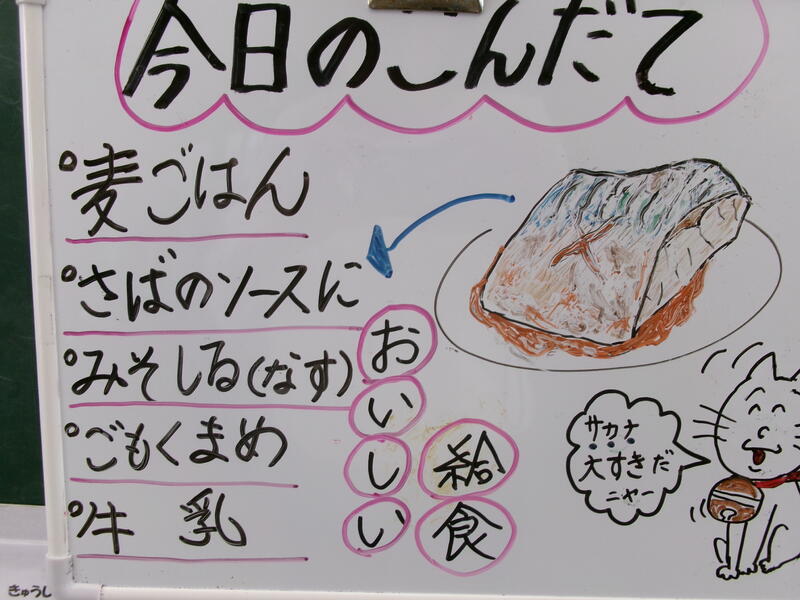 今日のこんだて
麦ごはん
さばのソースに
みそしる(なす)
ごもくまめ
牛乳
おいしい
給食
サカナ
大すきだ
ニャー
きゅうし